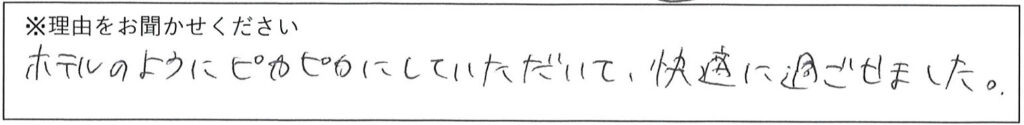 ※理由をお聞かせください
ホテルのようにピカピカにしていただいて、快適に過ごせました。